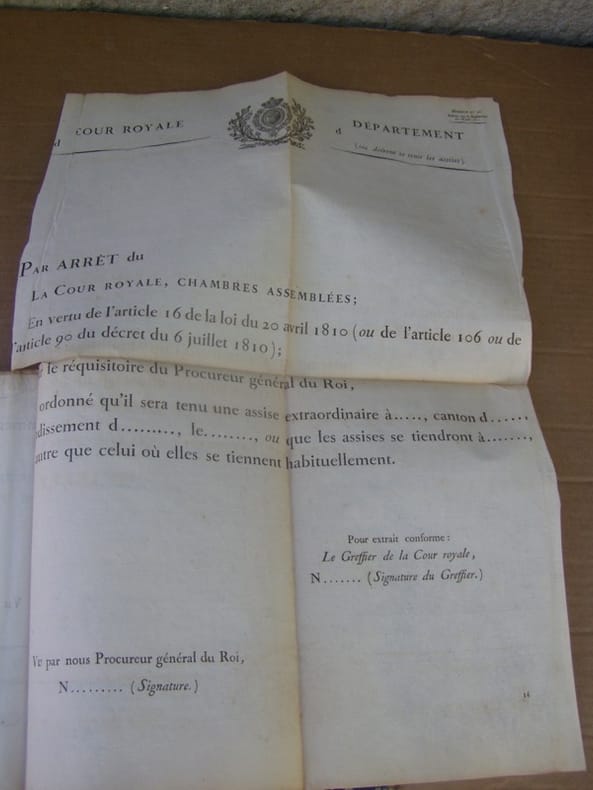 COUR ROYALE
d
d
DÉPARTEMENT
(où doivent se tenir les assises).
PAR ARRÊT du
LA COUR ROYALE, CHAMBRES ASSEMBLÉES;
En vertu de l'article 16 de la loi du 20 avril 1810 (ou de l'article 106 ou de
l'article 90 du décret du 6 juillet 1810);
le réquisitoire du Procureur général du Roi,
ordonné qu'il sera tenu une assise extraordinaire à....., canton d......
dissement d........., le........, ou que les assises se tiendront à.......,
utre que celui où elles se tiennent habituellement.
Pour extrait conforme :
Le Greffier de la Cour royale,
N....... (Signature du Greffier.)
Vu par nous Procureur général du Roi,
N......... (Signature.)